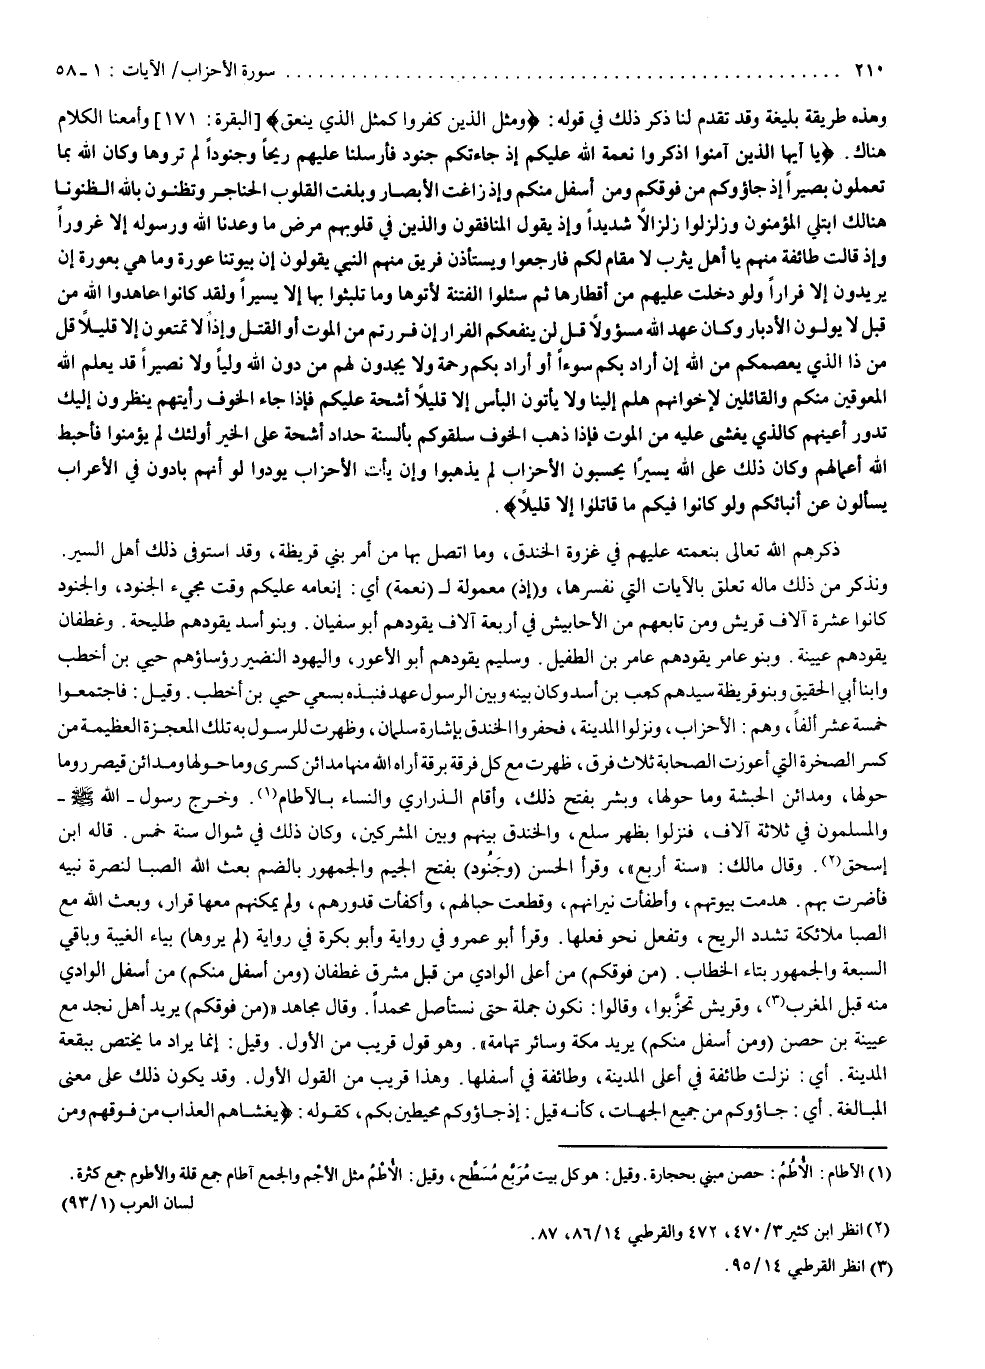 ٢١٠ ............................................................ سورة الأحزاب/ الآيات : ١ ـ ٥٨
وهذه طريقة بليغة وقد تقدم لنا ذكر ذلك في قوله : ﴿ومثل الذين كفروا كمثل الذي ينعق﴾ [البقرة : ١٧١] وأمعنا الكلام
هناك . ﴿يا آيها الذين آمنوا اذكروا نعمة الله عليكم إذ جاءتكم جنود فأرسلنا عليهم ريحاً وجنوداً لم تروها وكان الله بما
تعملون بصيراً إذ جاؤوكم من فوقكم ومن أسفل منكم وإذ زاغت الأبصار وبلغت القلوب الحناجر وتظنون بالله الظنونا
هنالك ابتلي المؤمنون وزلزلوا زلزالاً شديداً وإذ يقول المنافقون والذين في قلوبهم مرض ما وعدنا الله ورسوله إلا غروراً
وإذ قالت طائفة منهم يا أهل يثرب لا مقام لكم فارجعوا ويستأذن فريق منهم النبي يقولون إن بيوتنا عورة وما هي بعورة إن
يريدون إلا فراراً ولو دخلت عليهم من أقطارها ثم سئلوا الفتنة لأتوها وما تلبثوا بها إلا يسيراً ولقد كانوا عاهدوا الله من
قبل لا يولون الأدبار وكان عهد الله مسؤولاً قل لن ينفعكم الفرار إن فررتم من الموت أو القتل وإذاً لا تمتعون إلا قليلاً قل
من ذا الذي يعصمكم من الله إن أراد بكم سوءاً أو أراد بكم رحمة ولا يجدون لهم من دون الله ولياً ولا نصيراً قد يعلم الله
المعوقين منكم والقائلين لإخوانهم هلم إلينا ولا يأتون البأس إلا قليلاً أشحة عليكم فإذا جاء الخوف رأيتهم ينظرون إليك
تدور أعينهم كالذي يغشى عليه من الموت فإذا ذهب الخوف سلقوكم بألسنة حداد أشحة على الخير أولئك لم يؤمنوا فأحبط
الله أعمالهم وكان ذلك على الله يسيرًا يحسبون الأحزاب لم يذهبوا وإن يأت الأحزاب يودوا لو أنهم بادون في الأعراب
يسألون عن أنبائكم ولو كانوا فيكم ما قاتلوا إلا قليلاً﴾ .
ذكرهم الله تعالى بنعمته عليهم في غزوة الخندق ، وما اتصل بها من أمر بني قريظة ، وقد استوفى ذلك أهل السير .
ونذكر من ذلك ماله تعلق بالآيات التي نفسرها ، و(إذ) معمولة لـ (نعمة) أي : إنعامه عليكم وقت مجيء الجنود ، والجنود
كانوا عشرة آلاف قريش ومن تابعهم من الأحابيش في أربعة آلاف يقودهم أبو سفيان . وبنو أسد يقودهم طليحة . وغطفان
يقودهم عيينة . وبنو عامر يقودهم عامر بن الطفيل . وسليم يقودهم أبو الأعور ، واليهود النضير رؤساؤهم حيي بن أخطب
وابنا أبي الحقيق وبنو قريظة سيدهم كعب بن أسد وكان بينه وبين الرسول عهد فنبذه بسعي حيي بن أخطب . وقيل : فاجتمعوا
خمسة عشر ألفاً ، وهم : الأحزاب ، ونزلوا المدينة ، فحفروا الخندق بإشارة سلمان ، وظهرت للرسول به تلك المعجزة العظيمة من
كسر الصخرة التي أعوزت الصحابة ثلاث فرق ، ظهرت مع كل فرقة برقة أراه الله منها مدائن كسرى وما حولها ومدائن قيصر وما
حولها ، ومدائن الحبشة وما حولها ، وبشر بفتح ذلك ، وأقام الذراري والنساء بالآطام(١) . وخرج رسول ـ الله ﷺ ـ
والمسلمون في ثلاثة آلاف ، فنزلوا بظهر سلع ، والخندق بينهم وبين المشركين ، وكان ذلك في شوال سنة خمس . قاله ابن
إسحق(٢) . وقال مالك : «سنة أربع» ، وقرأ الحسن (وجَنُود) بفتح الجيم والجمهور بالضم بعث الله الصبا لنصرة نبيه
فأضرت بهم . هدمت بيوتهم ، وأطفأت نيرانهم ، وقطعت حبالهم ، وأكفأت قدورهم ، ولم يمكنهم معها قرار ، وبعث الله مع
الصبا ملائكة تشدد الريح ، وتفعل نحو فعلها . وقرأ أبو عمرو في رواية وأبو بكرة في رواية (لم يروها) بياء الغيبة وباقي
السبعة والجمهور بتاء الخطاب . (من فوقكم) من أعلى الوادي من قبل مشرق غطفان (ومن أسفل منكم) من أسفل الوادي
منه قبل المغرب(٣) ، وقريش تحزَّبوا ، وقالوا : نكون جملة حتى نستأصل محمداً . وقال مجاهد «(من فوقكم) يريد أهل نجد مع
عيينة بن حصن (ومن أسفل منكم) يريد مكة وسائر تهامة» . وهو قول قريب من الأول . وقيل : إنما يراد ما يختص ببقعة
المدينة . أي : نزلت طائفة في أعلى المدينة ، وطائفة في أسفلها . وهذا قريب من القول الأول . وقد يكون ذلك على معنى
المبالغة . أي : جاؤوكم من جميع الجهات ، كأنه قيل : إذ جاؤوكم محيطين بكم ، كقوله : ﴿يغشاهم العذاب من فوقهم ومن
(١) الآطام : الْأُطُمُ : حصن مبني بحجارة . وقيل : هو كل بيت مُرَبَّع مُسَطَّح ، وقيل : الْأُطْمُ مثل الأجْم والجمع آطام جمع قلة والأطوم جمع كثرة .
لسان العرب (٩٣/١)
(٢) انظر ابن كثير ٤٧٠/٣ ، ٤٧٢ والقرطبي ٨٦/١٤ ، ٨٧ .
(٣) انظر القرطبي ٩٥/١٤ .